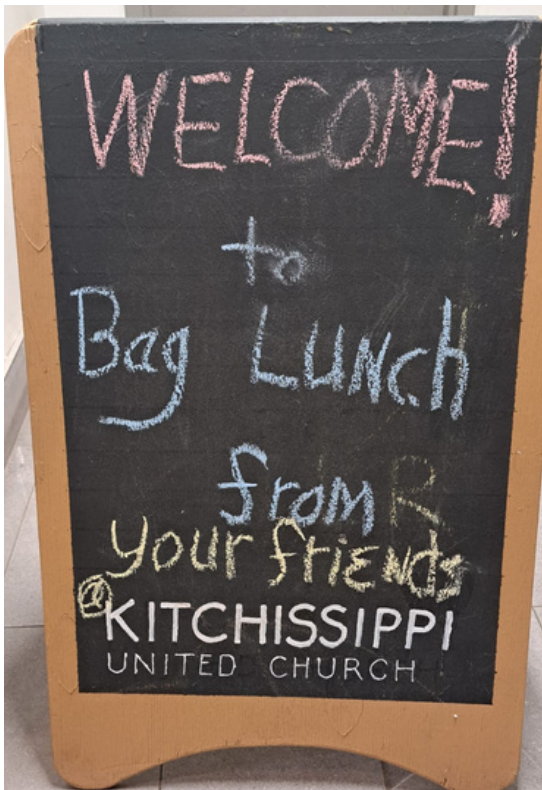 WELCOME!
to
Bag LUNch
from R
your friENds
@
KITCHISSIPPI
UNITED CHURCH